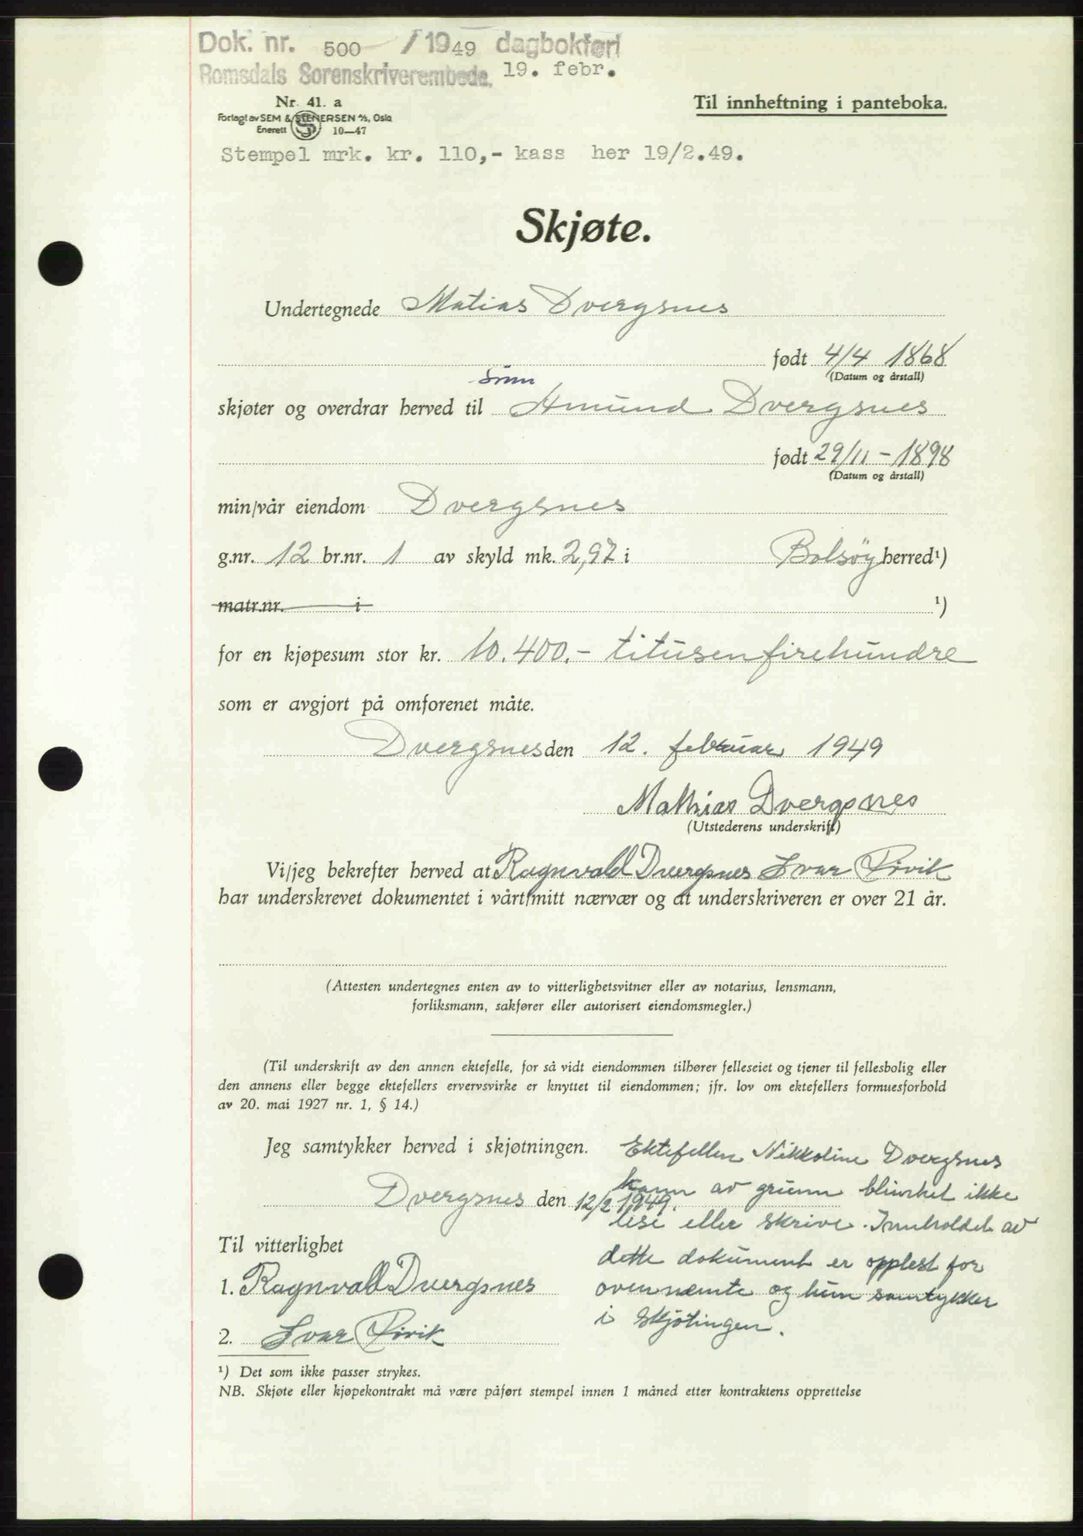 Dok. nr. 500 / 1949 dagbokført
Romsdals Sorenskriverembede. 19. febr.
Nr. 41. a
Til innheftning i panteboka.
Forlagt av SEM & STENERSEN A/S, Oslo
Enerett 10—47
Stempel mrk. kr. 110,- kass her 19/2.49.
Skjøte.
Undertegnede Matias Dvergsnes
født 4/4 1868
(Datum og årstall)
sønn
skjøter og overdrar herved til Amund Dvergsnes
født 29/11 - 1898
(Datum og årstall)
min/vår eiendom Dvergsnes
g.nr. 12 br.nr. 1 av skyld mk. 2,97 i Bolsøy herred¹)
matr.nr. i ¹)
for en kjøpesum stor kr. 10.400.- titusenfirehundre
som er avgjort på omforenet måte.
Dvergsnes den 12. februar 1949
Mathias Dvergsnes
(Utstederens underskrift)
Vi/jeg bekrefter herved at Ragnvald Dvergsnes Ivar
har underskrevet dokumentet i vårt/mitt nærvær og at underskriveren er over 21 år.
(Attesten undertegnes enten av to vitterlighetsvitner eller av notarius, lensmann,
forliksmann, sakfører eller autorisert eiendomsmegler.)
(Til underskrift av den annen ektefelle, for så vidt eiendommen tilhører felleseiet og tjener til fellesbolig eller
den annens eller begge ektefellers ervervsvirke er knyttet til eiendommen; jfr. lov om ektefellers formuesforhold
av 20. mai 1927 nr. 1, § 14.)
Jeg samtykker herved i skjøtningen.
Dvergsnes den 12/2 1949.
Ektefellen Nikkoline Dvergsnes
kann av grunn blindhet ikke
lese eller skrive. Innholdet av
dette dokument er opplest for
ovennemte og hun samtykker
i Skjötingen.
Til vitterlighet
1. Ragnvald Dvergsnes
2. Ivar
¹) Det som ikke passer strykes.
NB. Skjøte eller kjøpekontrakt må være påført stempel innen 1 måned etter kontraktens opprettelse